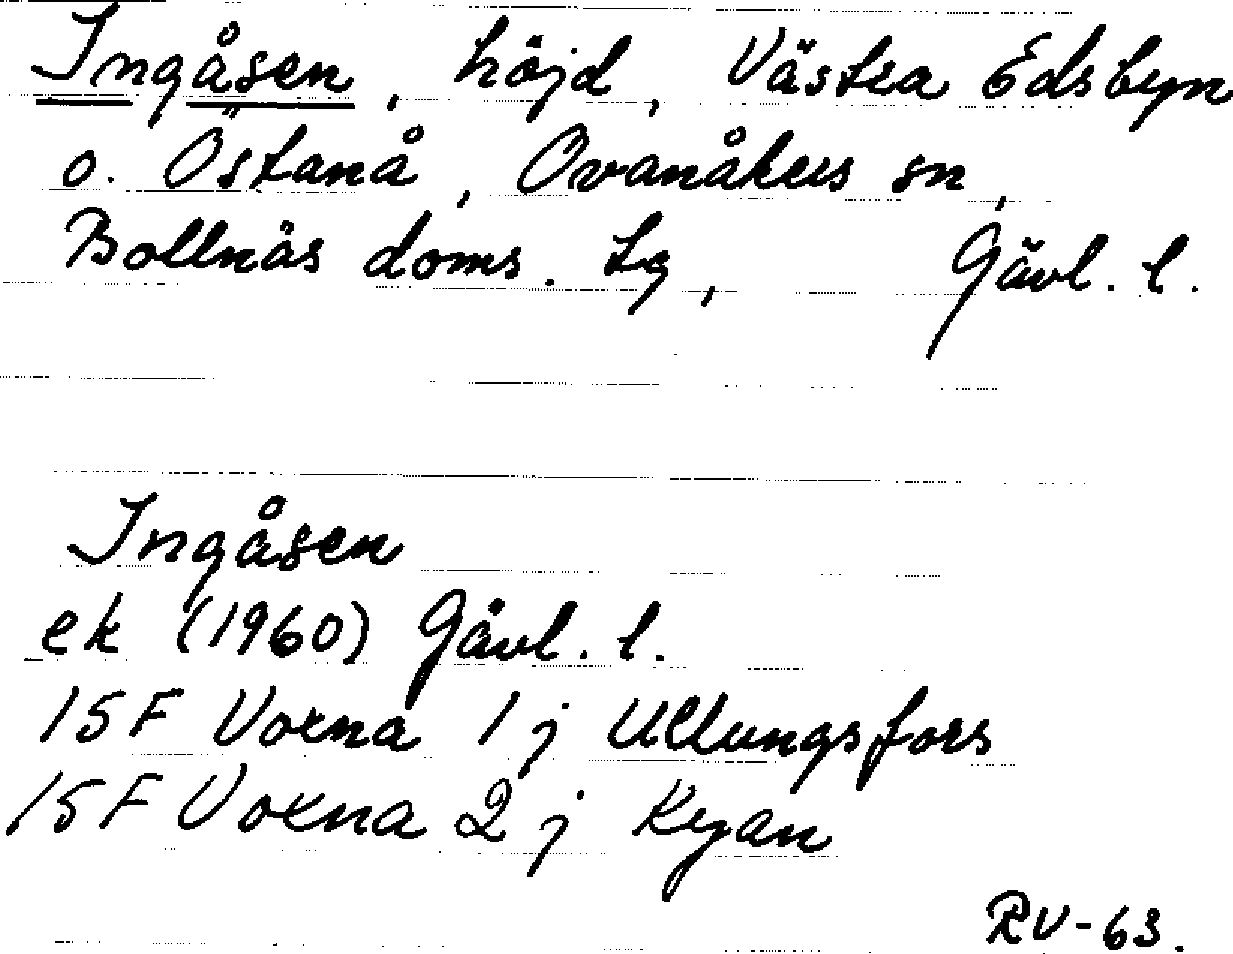 Ingåsen, höjd, Västra Edsbyn
o. Östanå, Ovanåkers sn,
Bollnäs doms. lg, Gävl. l.
Ingåsen
ek (1960) Gävl. l.
15F Voxna 1 j Ullungsfors
15F Voxna 2 j Kyan
RV-63.